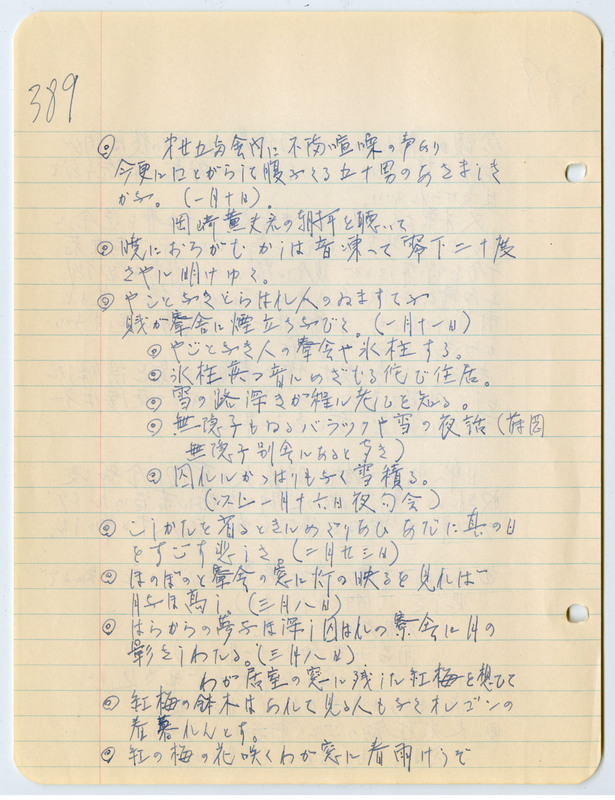 389
◎ 第廿五寮舎内に不断喧噪の声あり
今更に口とがらして腹ふくる五十男のあさましき
かな。(一月十日)。
岡崎黄丈君の朝拝を聴いて
◎ 暁におろがむかしは音凍って零下二十度
さやに明けゆく。
◎ やごとなきとらはれ人のゐますてふ
賤が寮舎に煙立ちなびく。(一月十一日)
◎ やごとなき人の寮舎や氷柱する。
◎ 氷柱落つ音にめざむる侘び住居。
◎ 雪の路深きが程に老ひを知る。
◎ 無隠子もねるバラックや雪の夜話(
無隠子別舎にあると多き)
◎ 囚れにかゝはりもなく雪積る。
(以上一月十六日夜句会)
◎ こしかたを省るときにめぐりあひあだに真の日
をすごす悲しさ。(二月廿三日)
◎ ほのぼのと寮舎の窓に灯の映るを見れば
月は高し。(三月八日)
◎ はらからの夢は深し囚はれの寮舎に月の
影さしわたる。(三月八日)
わが居室の窓に残した紅梅を想ひて
◎ 紅梅の鉢木はあれて見る人もなくオレゴンの
春暮れんとす。
◎ 紅の梅の花咲くわが窓に春雨けうぞ